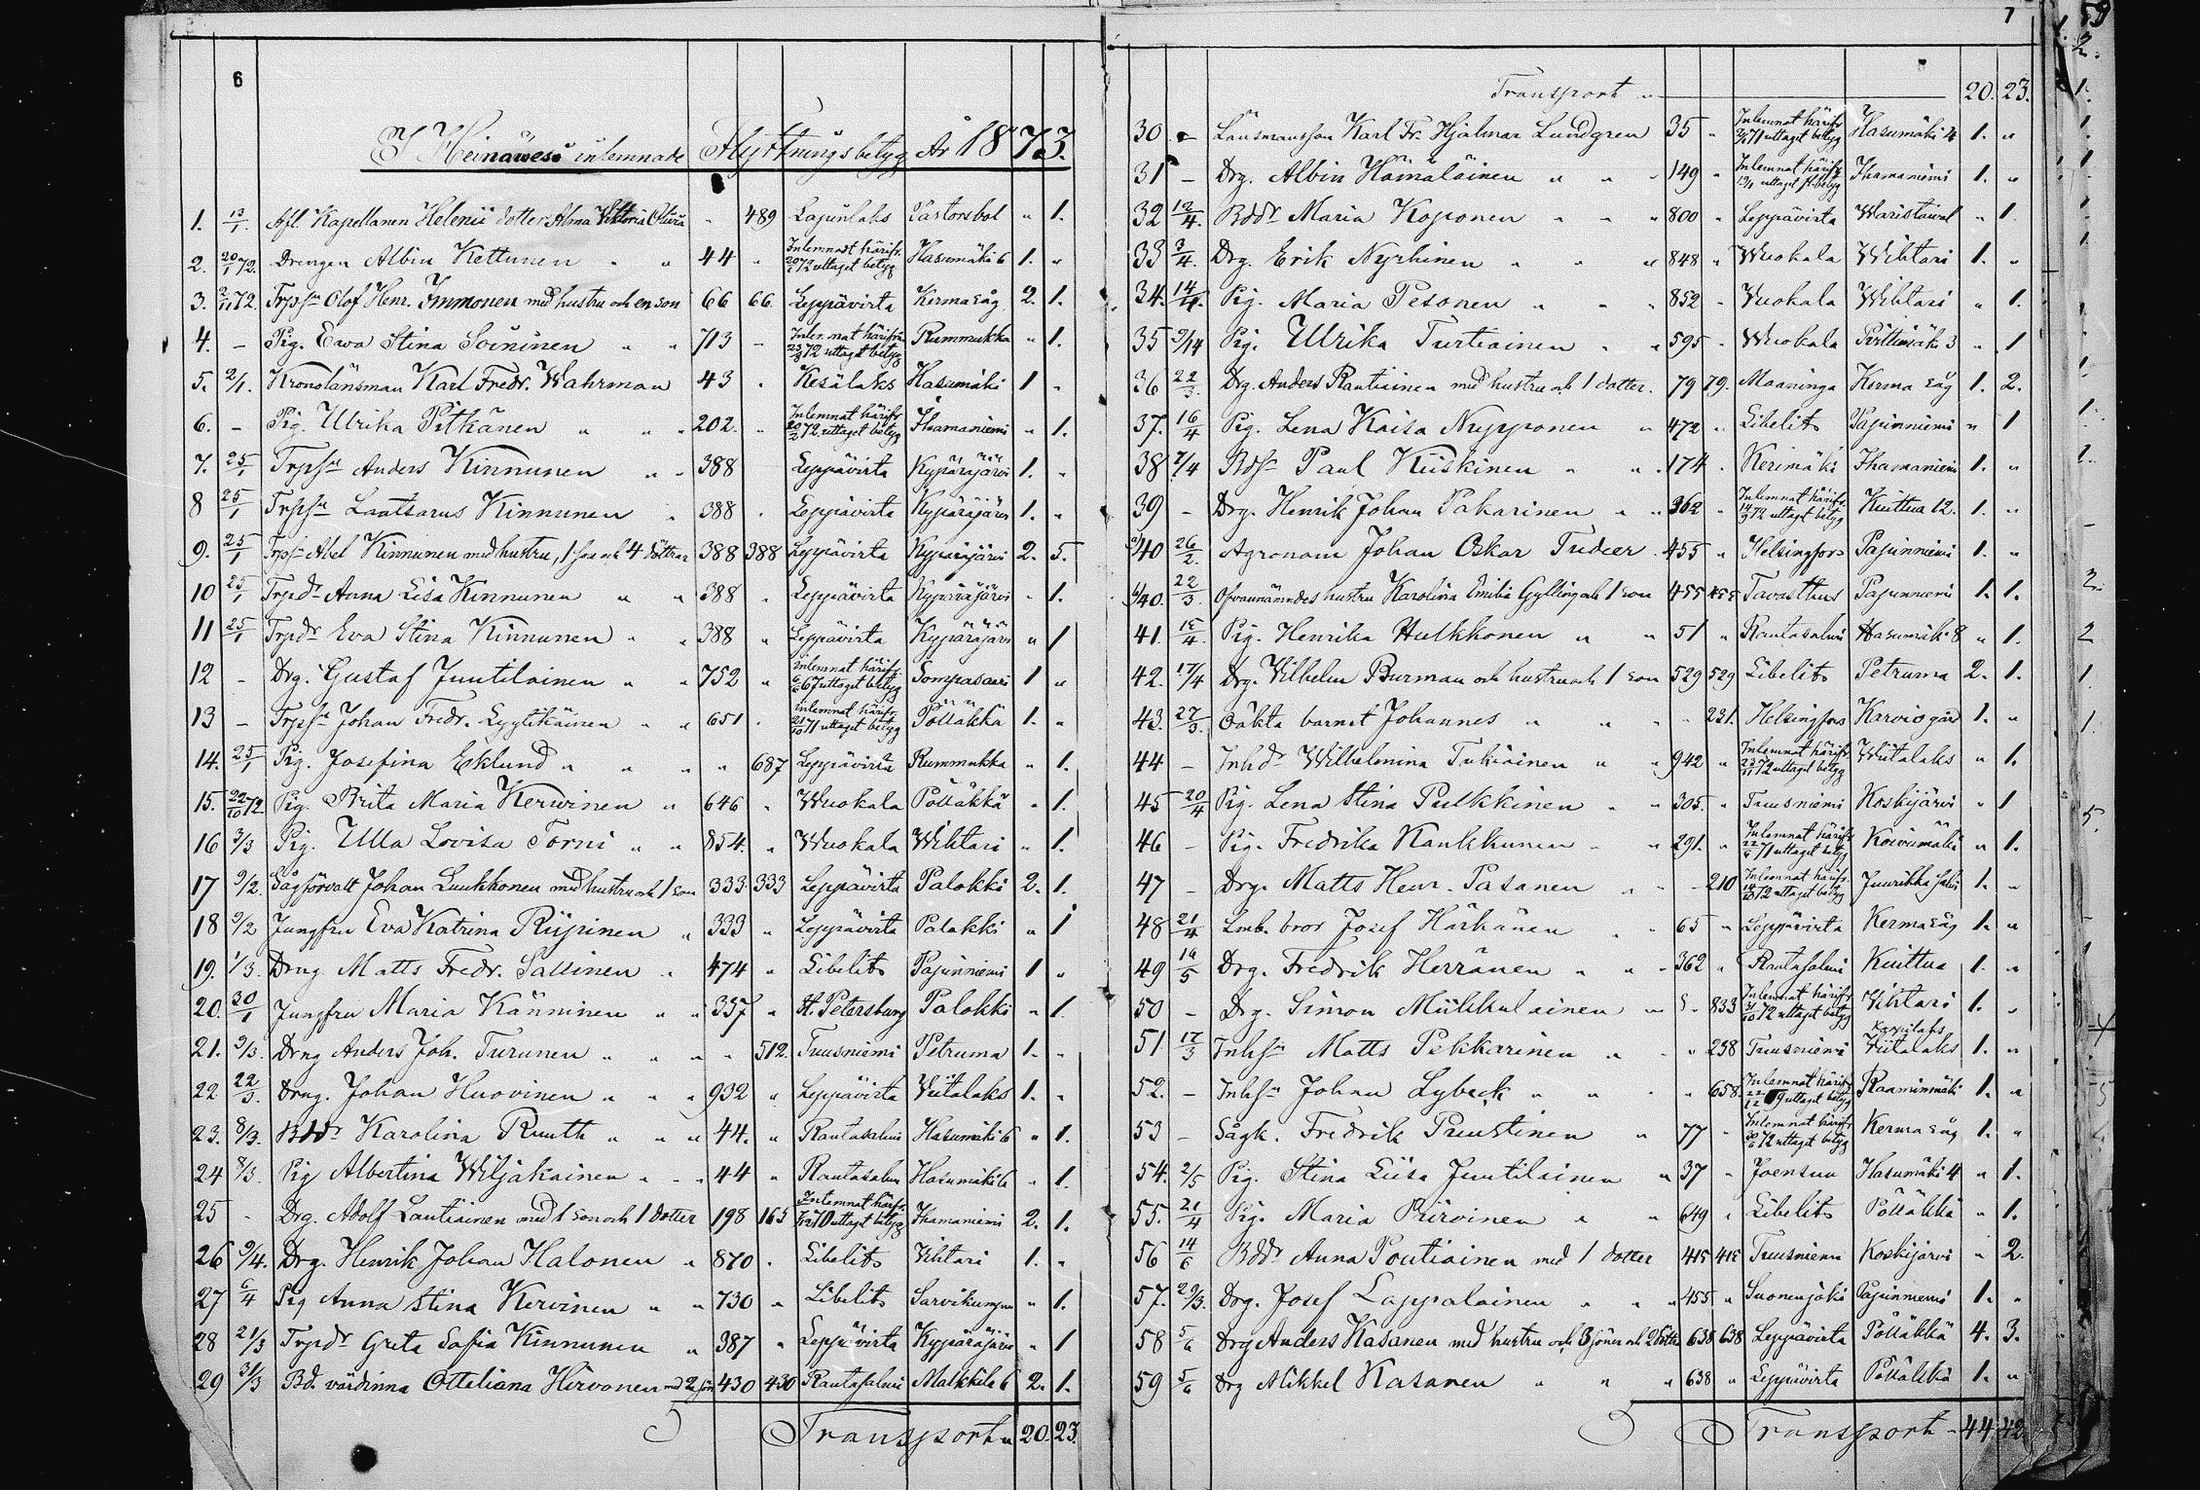 6
I Heinäwesi inlemnade Flyttningsbetyg År 1873.
1. 13/1. Afl. Kapellanen Helenii dotter Alma Viktoria " 489 Lapinlaks Pastorsbol " 1.
2. 20/1 72. Drengen Albin Kettunen " " 44 " Inlemnadt härifr. 20/1 72 uttaget betyg Hasumäki 6 1. "
3. 2/11 72. Trpsn Olof Henr. Immonen med hustru och en son 66 66. Leppävirta Kerma såg 2. 1.
4. – Pig. Ewa Stina Soininen " " 713 – Inlemnat härifrån 23/3 72 uttaget betyg Rummukka " 1.
5. 2/1. Kronolänsman Karl Fredr. Wahrman 43 " Kesälaks Hasumäki 1 "
6. – Pig. Ulrika Pitkänen " " " 202. " Inlemnat härifr 20/2 72 uttaget betyg Ihamaniemi " 1.
7. 25/1 Trpsn Anders Kinnunen " " 388 Leppävirta Kypäräjärvi 1. "
8 25/1 Trpsn Laatsarus Kinnunen " 388 " Leppävirta Kypäräjärvi 1. "
9. 25/1 Trpsn Abel Kinnunen med hustru, 1 son och 4 döttrar 388 388 Leppävirta Kypäräjärvi 2. 5.
10 25/1 Trpdr Anna Lisa Kinnunen " " 388 " Leppävirta Kypäräjärvi " 1.
11 25/1 Trpdr Eva Stina Kinnunen " " 388 " Leppävirta Kypäräjärvi " 1
12 – Drg. Gustaf Juutilainen " " 752 " Inlemnat härifr. 6/6 67 uttaget betyg Sompasaari 1 "
13 – Trpsn Johan Fredr. Lyytikäinen " " 651 " Inlemnat härifr. 21/10 71 uttaget betyg Pölläkkä 1. "
14. 25/1 Pig. Josefina Eklund " " " " 687 Leppävirta Rummukka " 1.
15. 22/10 72. Pig. Brita Maria Kerwinen " 646 " Wuokala Pölläkkä " 1.
16 3/3 Pig. Ulla Lovisa Torni " " 854. " Wuokala Wihtari " 1.
17 9/2. Sågförvalt Johan Luukkonen med hustru och 1 son 333 333 Leppävirta Palokki 2. 1.
18 9/2 Jungfru Eva Katrina Riipinen " 333 " Leppävirta Palokki " 1
19. 1/3. Drng Matts Fredr. Sallinen " 474 " Libelits Pajunniemi 1 "
20. 30/1 Jungfru Maria Känninen " " 337 " St. Petersburg Palokki " 1.
21. 9/3. Drng Anders Joh. Turunen " " " " 512. Tuusniemi Petruma 1. "
22 22/3. Drng. Johan Huovinen " " " 932 " Leppävirta Viitalaks 1. "
23. 8/3. Bddr Karolina Ruuth " " " 44. " Rantasalmi Hasumäki 6 " 1.
24 8/3. Pig Albertina Wiljakainen " " " 44 " Rantasalmi Hasumäki 6 " 1.
25 - Drg. Adolf Lautiainen med 1 son och 1 dotter 198 165 Inlemnat härifr. 70 uttaget betyg Ihamaniemi 2. 1.
26 9/4. Drg. Henrik Johan Halonen " 870 " Libelits Vihtari 1. "
27 6/4 Pig Anna Stina Kervinen " " 730 " Libelits Sarvikumpu " 1.
28 21/3 Trpdr Greta Sofia Kinnunen " 387 " Leppävirta Kypäräjärvi " 1
29 31/3 Bd. värdinna Otteliana Hirvonen med 2 sön 430 430 Rantasalmi Malkkila 6 2. 1.
Transport " 20. 23.
7
Transport " 20. 23.
30 – Länsmansson Karl Fr. Hjalmar Lundgren 35 " Inlemnat härifr 71 uttaget betyg Hasumäki 4 1. "
31 – Drg. Albin Hämäläinen " " " 149 " Inlemnat härifr 13/1 uttaget fl.betyg Ihamaniemi 1. "
32 12/4. Bddr Maria Koponen " " " 800 " Leppävirta Waristaival " 1
33 3/4. Drg. Erik Nyrhinen " " " 848 " Wuokala Wihtari 1. "
34. 14/4. Pig. Maria Pesonen " " " 852 " Vuokala Wihtari " 1.
35 9/14 Pig. Ulrika Turtiainen " " 595 " Wuokala Pirttimäki 3 " 1
36 22/3. Drg. Anders Rautiainen med hustru och 1 dotter. 79 79. Maaninga Kerma såg 1. 2.
37. 16/4 Pig. Lena Kaisa Nypponen " 472 " Libelits Pajunniemi " 1
38 7/4 Bdsn Paul Kiiskinen " " 174 " Kerimäki Ihamaniemi 1. "
39 – Drg. Henrik Johan Pakarinen " " 362 " Inlemnat härifr 14/9 72 uttaget betyg Kuittua 12. 1. "
a/40 26/2. Agronom Johan Oskar Tudeer 455 " Helsingfors Pajunniemi 1. "
b/40. 22/3. Ofvannämndes hustru Karolina Emilia Gylling och 1 son 455 455 Tavasthus Pajunniemi 1. 1.
41. 15/4. Pig. Henrika Hulkkonen " " 51 " Rantasalmi Hasumäki 8 " 1.
42. 17/4 Drg. Vilhelm Burman och hustru och 1 son 529 529 Libelits Petruma 2. 1.
43. 27/3. Oäkta barnet Johannes " " " 231. Helsingfors Karvio gård 1. "
44 – Inhdr Wilhelmina Tukiainen " " 942 " Inlemnat härifr 23/11 72 uttaget betyg Wiitalaks " 1.
45 20/4 Pig. Lena Stina Pulkkinen " " 305. " Tuusniemi Koskijärvi " 1
46 – Pig. Fredrika Kaukkunen " " 291. " Inlemnat härifr 22/6 71 uttaget betyg Koivumäki " 1.
47 – Drg. Matts Henr. Pasanen " " – 210 Inlemnat härifr. 72 uttaget betyg Juurikka 1. "
48 21/4 Lmb. bror Josef Härkänen " " 65 " Leppävirta Kerma såg 1. "
49 14/5 Drg. Fredrik Herränen " " " 362 " Rantasalmi Kuittua 1. "
50 – Drg. Simon Miikkulainen " " 833 Inlemnat härifr 31/10 72 uttaget betyg Vihtari 1. "
51 17/3 Inhsn Matts Pekkarinen " " " 238 Tuusniemi Viitalaks 1. "
52. – Inhsn Johan Lybeck " " " " 658. Inlemnat härifr 69 uttaget betyg Raaminmäki 1. "
53 – Sågk. Fredrik Puustinen " 77 " Inlemnat härifr 72 uttaget betyg Kerma såg 1. "
54. 2/5 Pig. Stina Liisa Juutilainen " 37 " Joensuu Hasumäki 4 " 1.
55. 21/4 Pig. Maria Piiroinen " " 649 " Libelits Pölläkkä " 1.
56 14/6 Bddr Anna Poutiainen med 1 dotter 415 415 Tuusniemi Koskijärvi " 2.
57. 29/3. Drg. Josef Lappalainen " " " 455 " Suonenjoki Pajunniemi 1. "
58 5/6 Drg Anders Kasanen med hustru och 3 söner och 2 döttr 638 638 Leppävirta Pölläkkä 4. 3.
59 5/6 Drg Mikkel Kasanen " " " 638 " Leppävirta Pölläkkä 1. "
Transport " 44. 42.